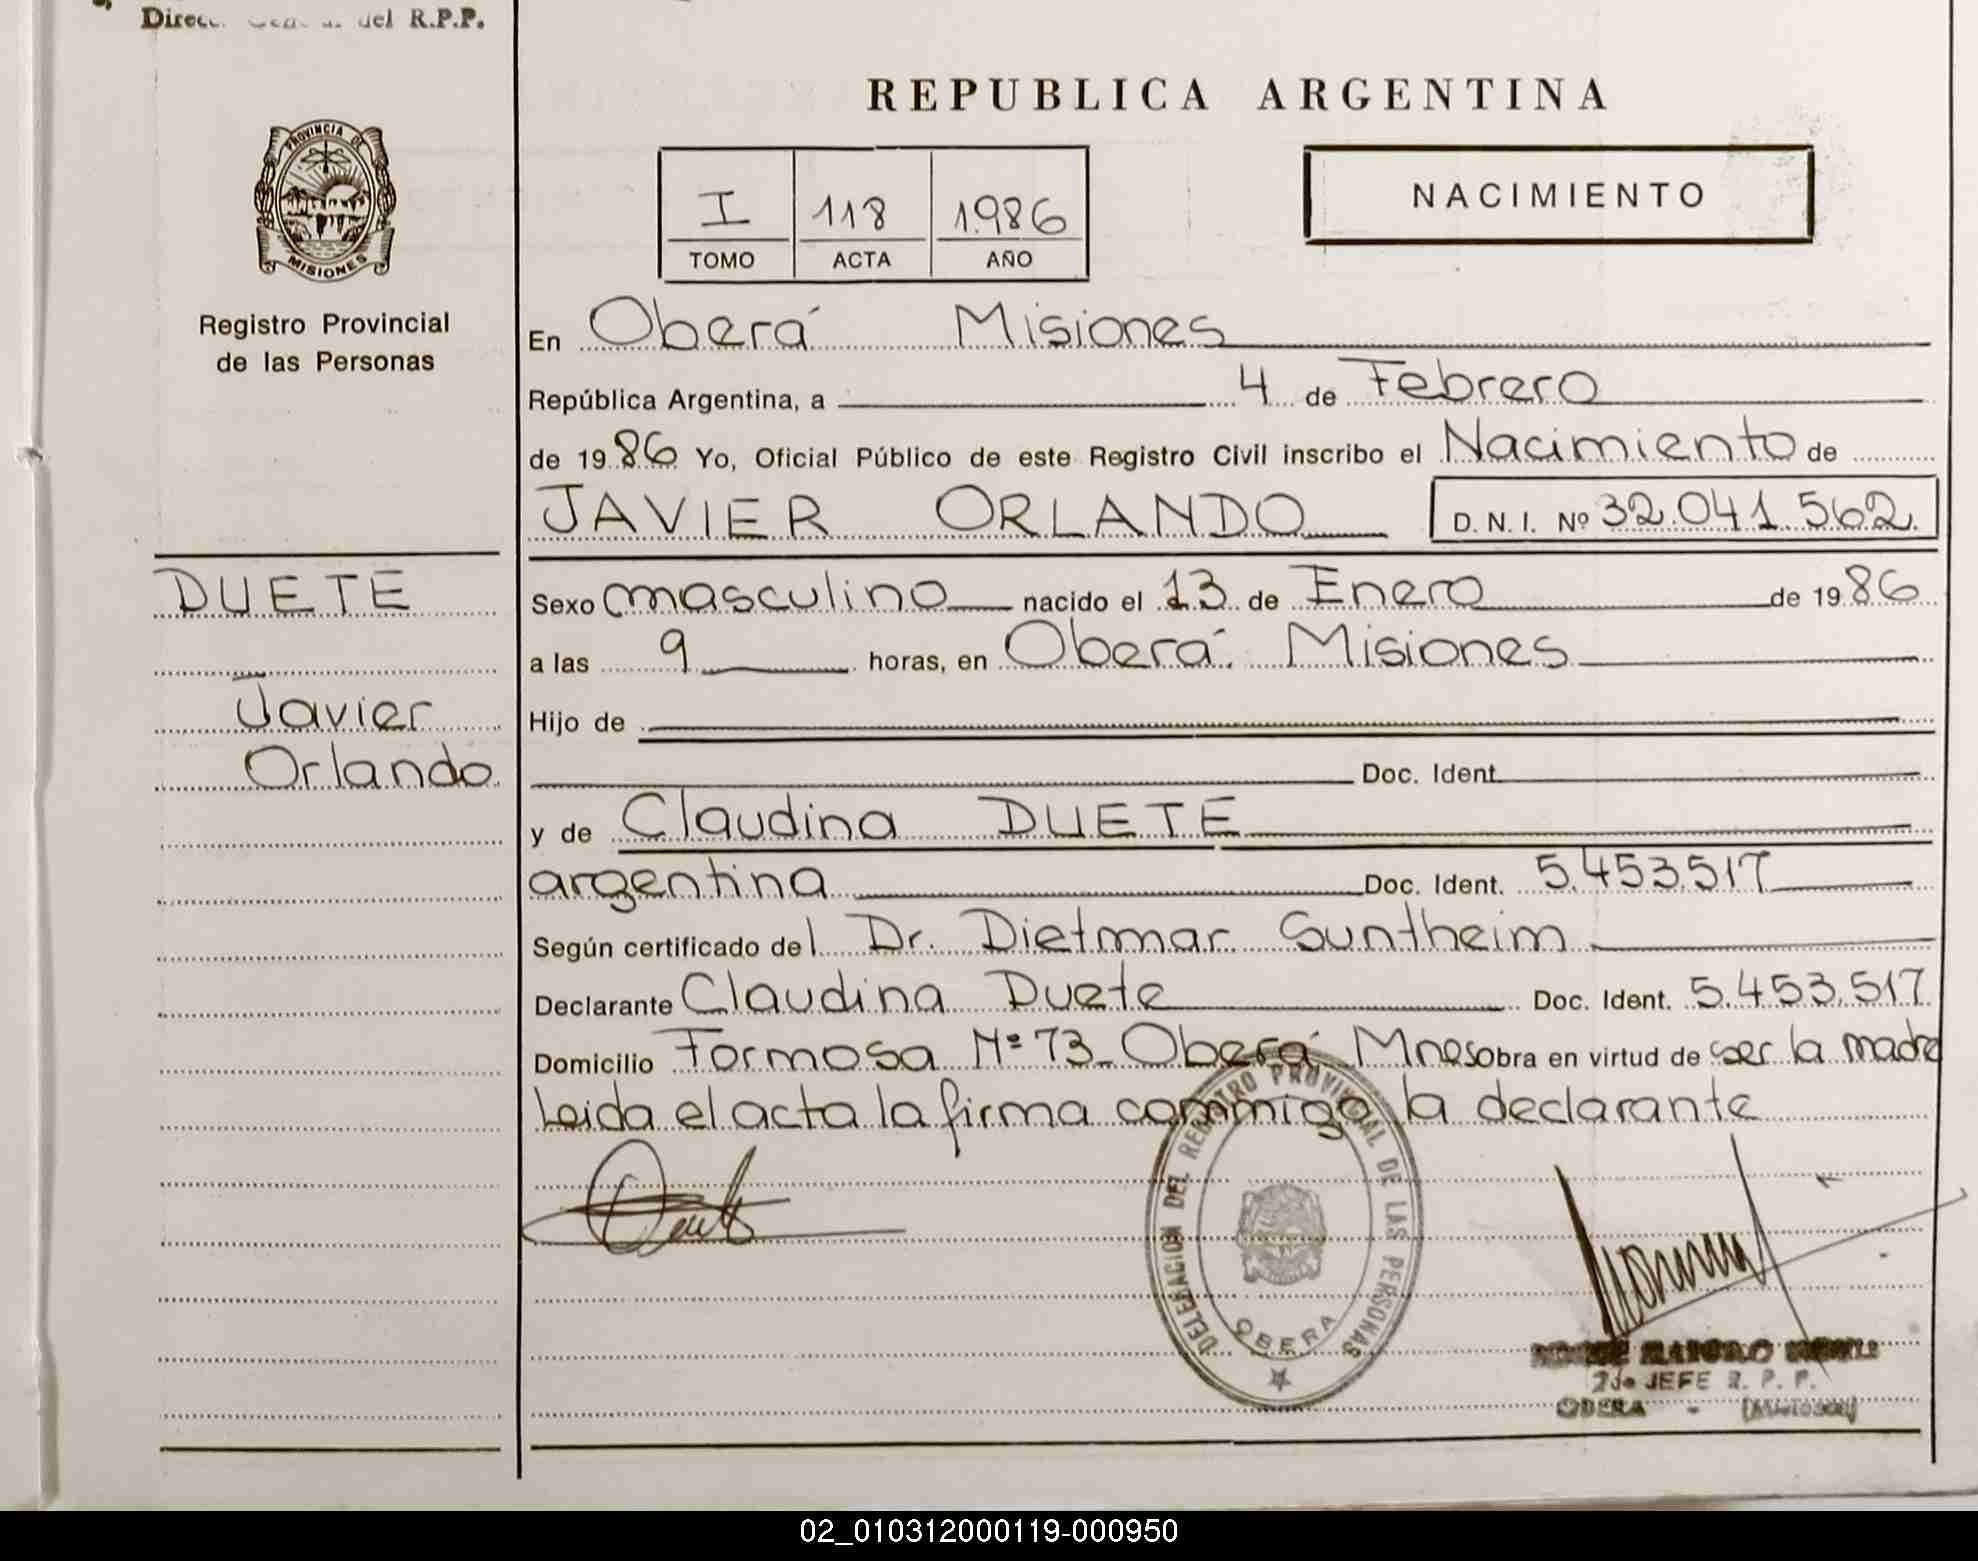 del R.P.P.
PROVINCIA DE
MISIONES
Registro Provincial
de las Personas
DUETE
Javier
Orlando
REPUBLICA ARGENTINA
I 118 1.986
TOMO ACTA AÑO
NACIMIENTO
En Oberá Misiones
República Argentina, a 4 de Febrero
de 1986 Yo, Oficial Público de este Registro Civil inscribo el Nacimiento de
JAVIER ORLANDO D.N.I. Nº 32.041.562.
Sexo masculino nacido el 13 de Enero de 1986
a las 9 horas, en Oberá. Misiones
Hijo de
Doc. Ident.
y de Claudina DUETE
argentina Doc. Ident. 5.453.517
Según certificado del Dr. Dietmar Suntheim
Declarante Claudina Duete Doc. Ident. 5.453.517
Domicilio Formosa Nº 73- Oberá Mnes obra en virtud de ser la madre
Leida el acta la firma conmigo la declarante
DELEGACION DEL REGISTRO PROVINCIAL DE LAS PERSONAS
OBERA
2do JEFE R. P. P.
OBERA - (Misiones)
02_010312000119-000950